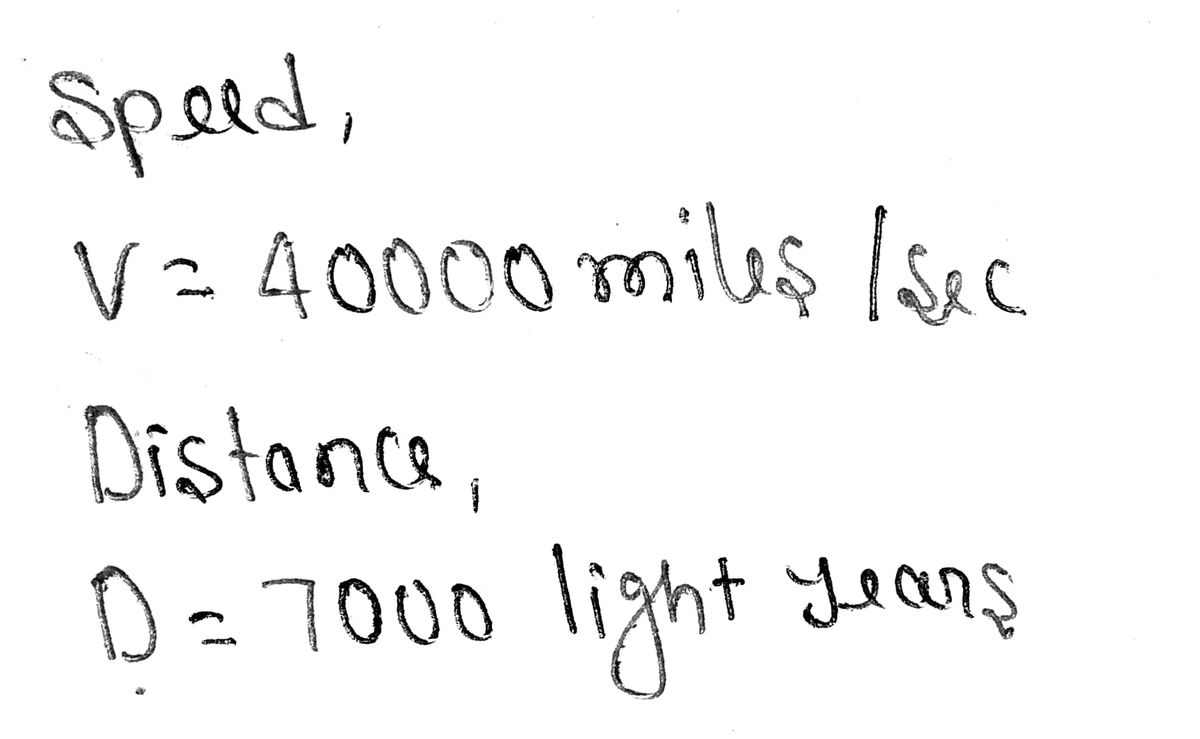 Speed,
V = 40000 miles / sec
Distance,
D = 7000 light years